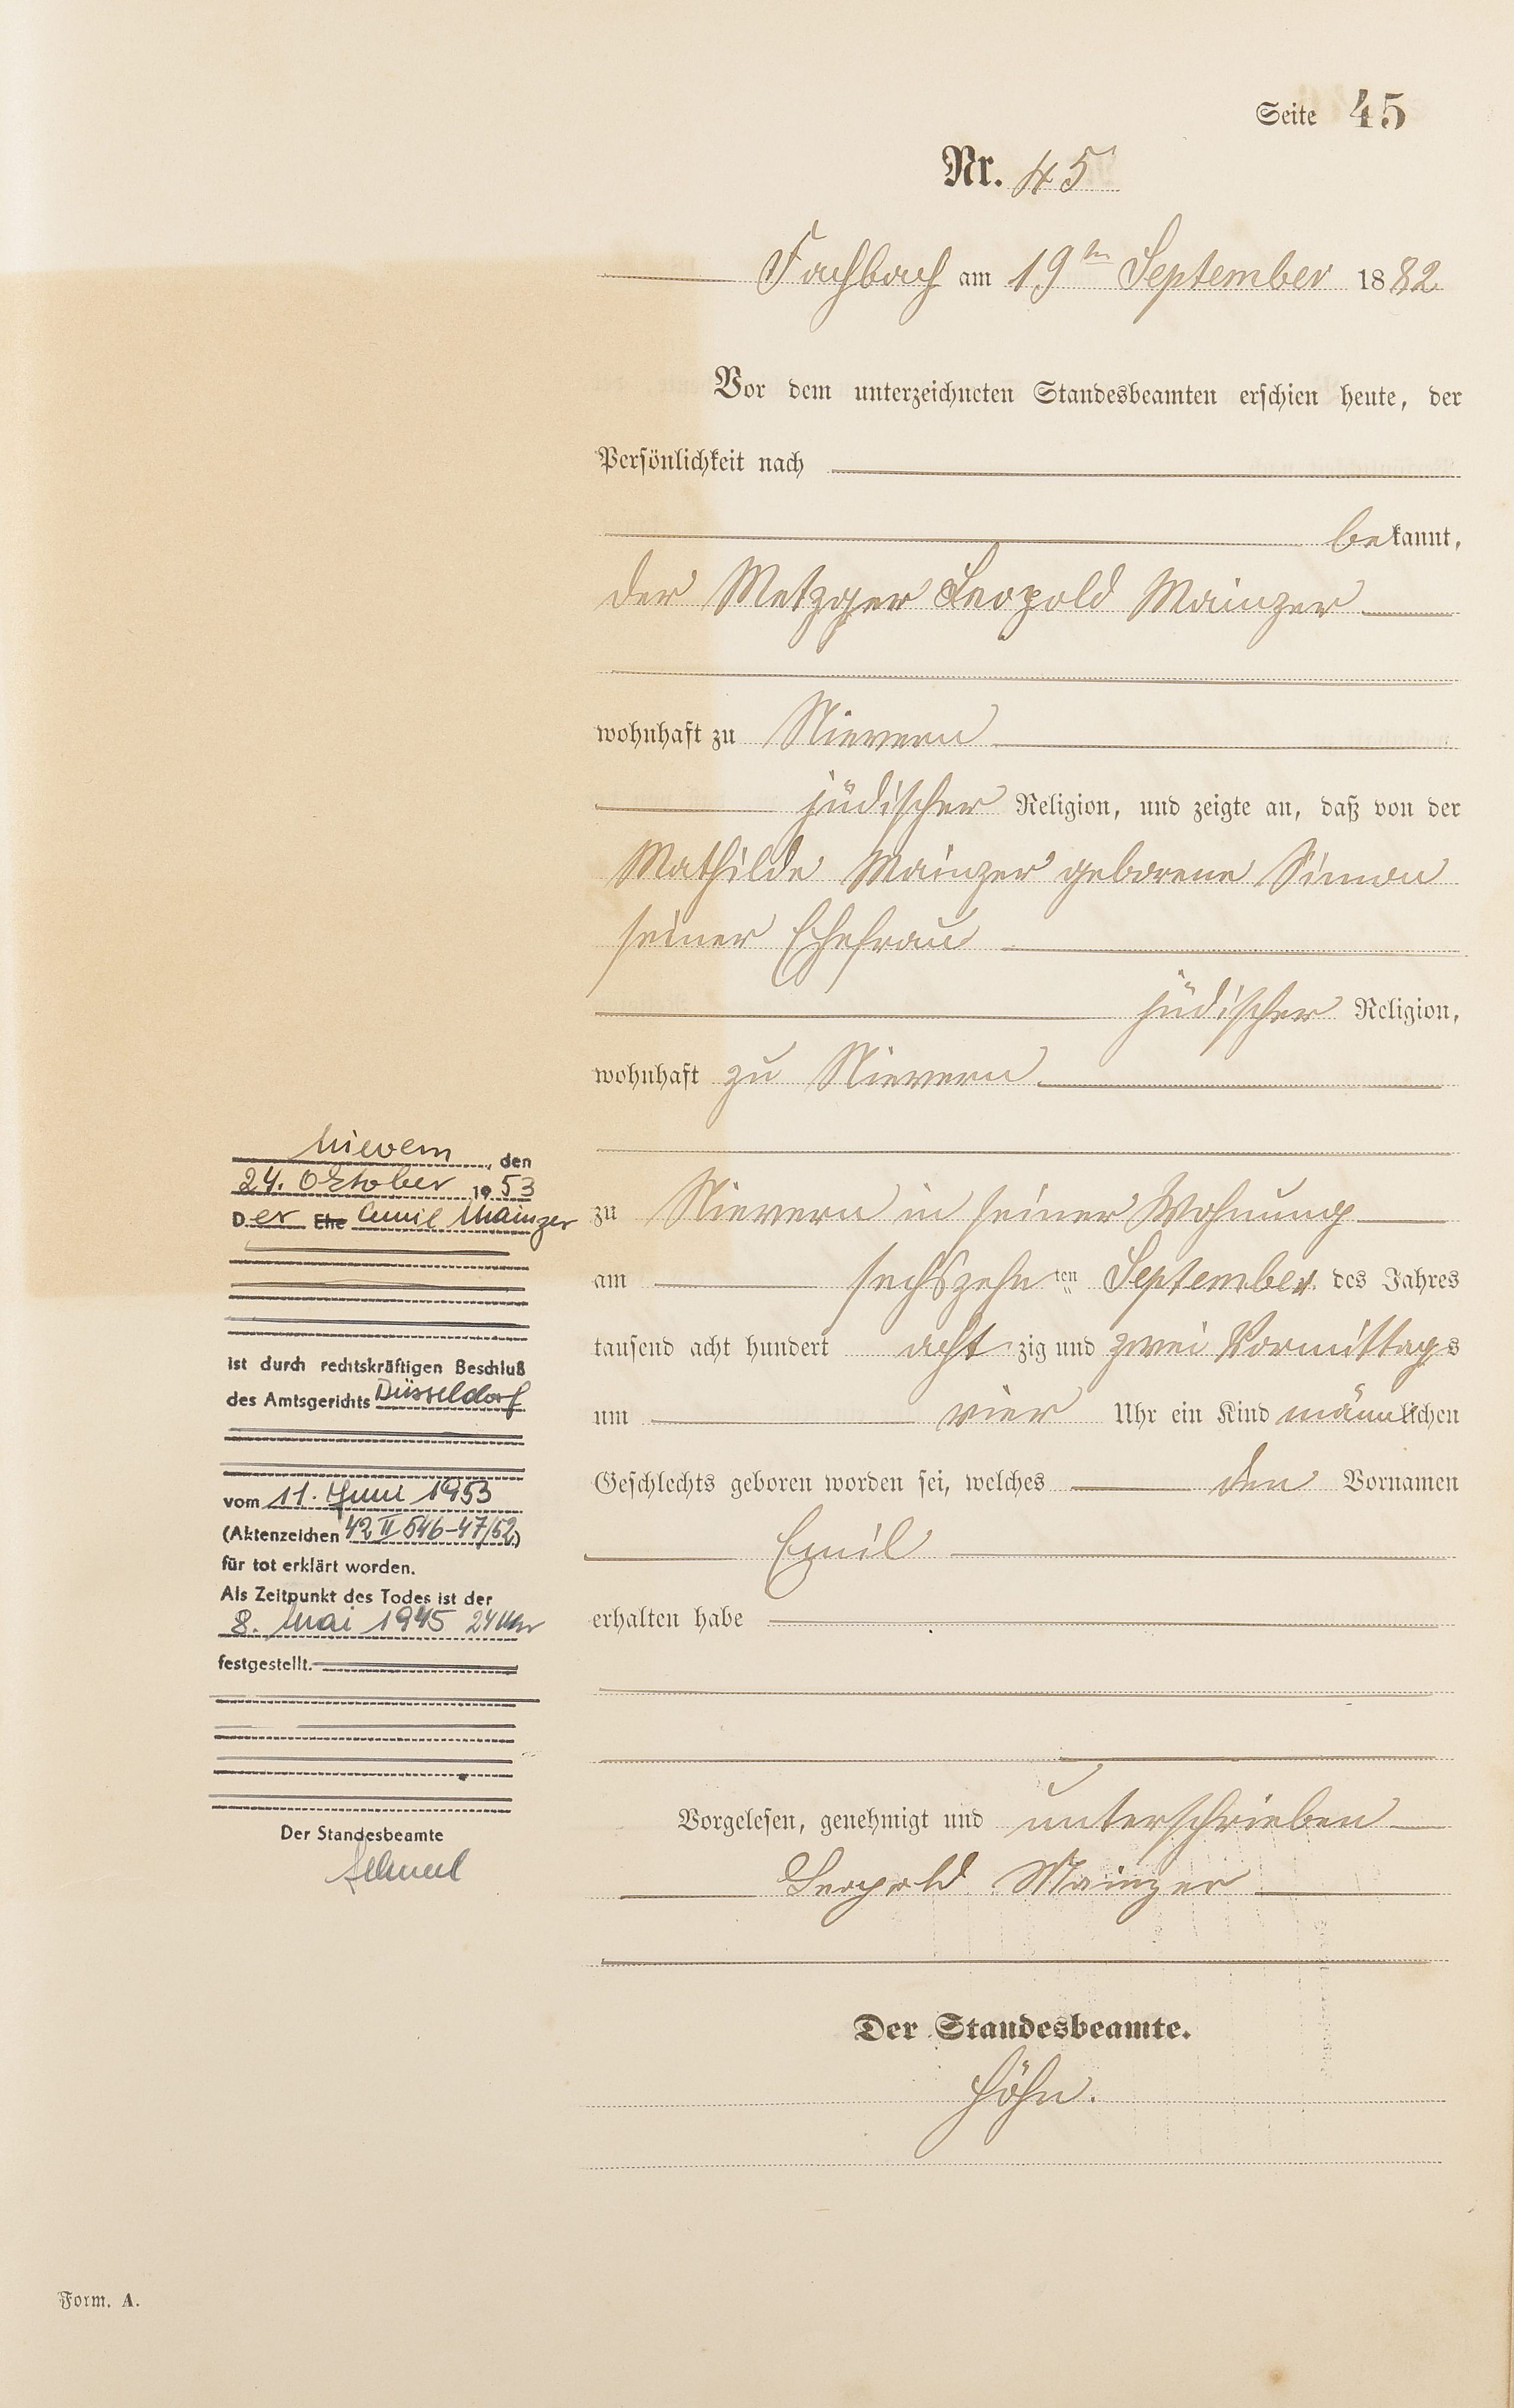 Seite 45
Nr. 45
Fachbach am 19ten September 1882
Vor dem unterzeichneten Standesbeamten erschien heute, der
Persönlichkeit nach
bekannt,
der Metzger Leopold Mainzer
wohnhaft zu Nievern
jüdischer Religion, und zeigte an, daß von der
Mathilde Mainzer geborene Simon
seiner Ehefrau
jüdischer Religion,
wohnhaft zu Nievern
zu Nievern in seiner Wohnung
am sechszehnten September des Jahres
tausend acht hundert achtzig und zwei Vormittags
um vier Uhr ein Kind männlichen
Geschlechts geboren worden sei, welches den Vornamen
Emil
erhalten habe
Vorgelesen, genehmigt und unterschrieben
Leopold Mainzer
Der Standesbeamte.
Höhn.
Nievern, den
24. Oktober 1953
Der Ehe Emil Mainzer
ist durch rechtskräftigen Beschluß
des Amtsgerichts Düsseldorf
vom 11. Juni 1953
(Aktenzeichen 42 II 546-47/52)
für tot erklärt worden.
Als Zeitpunkt des Todes ist der
8. Mai 1945 24 Uhr
festgestellt.
Der Standesbeamte
Form. A.